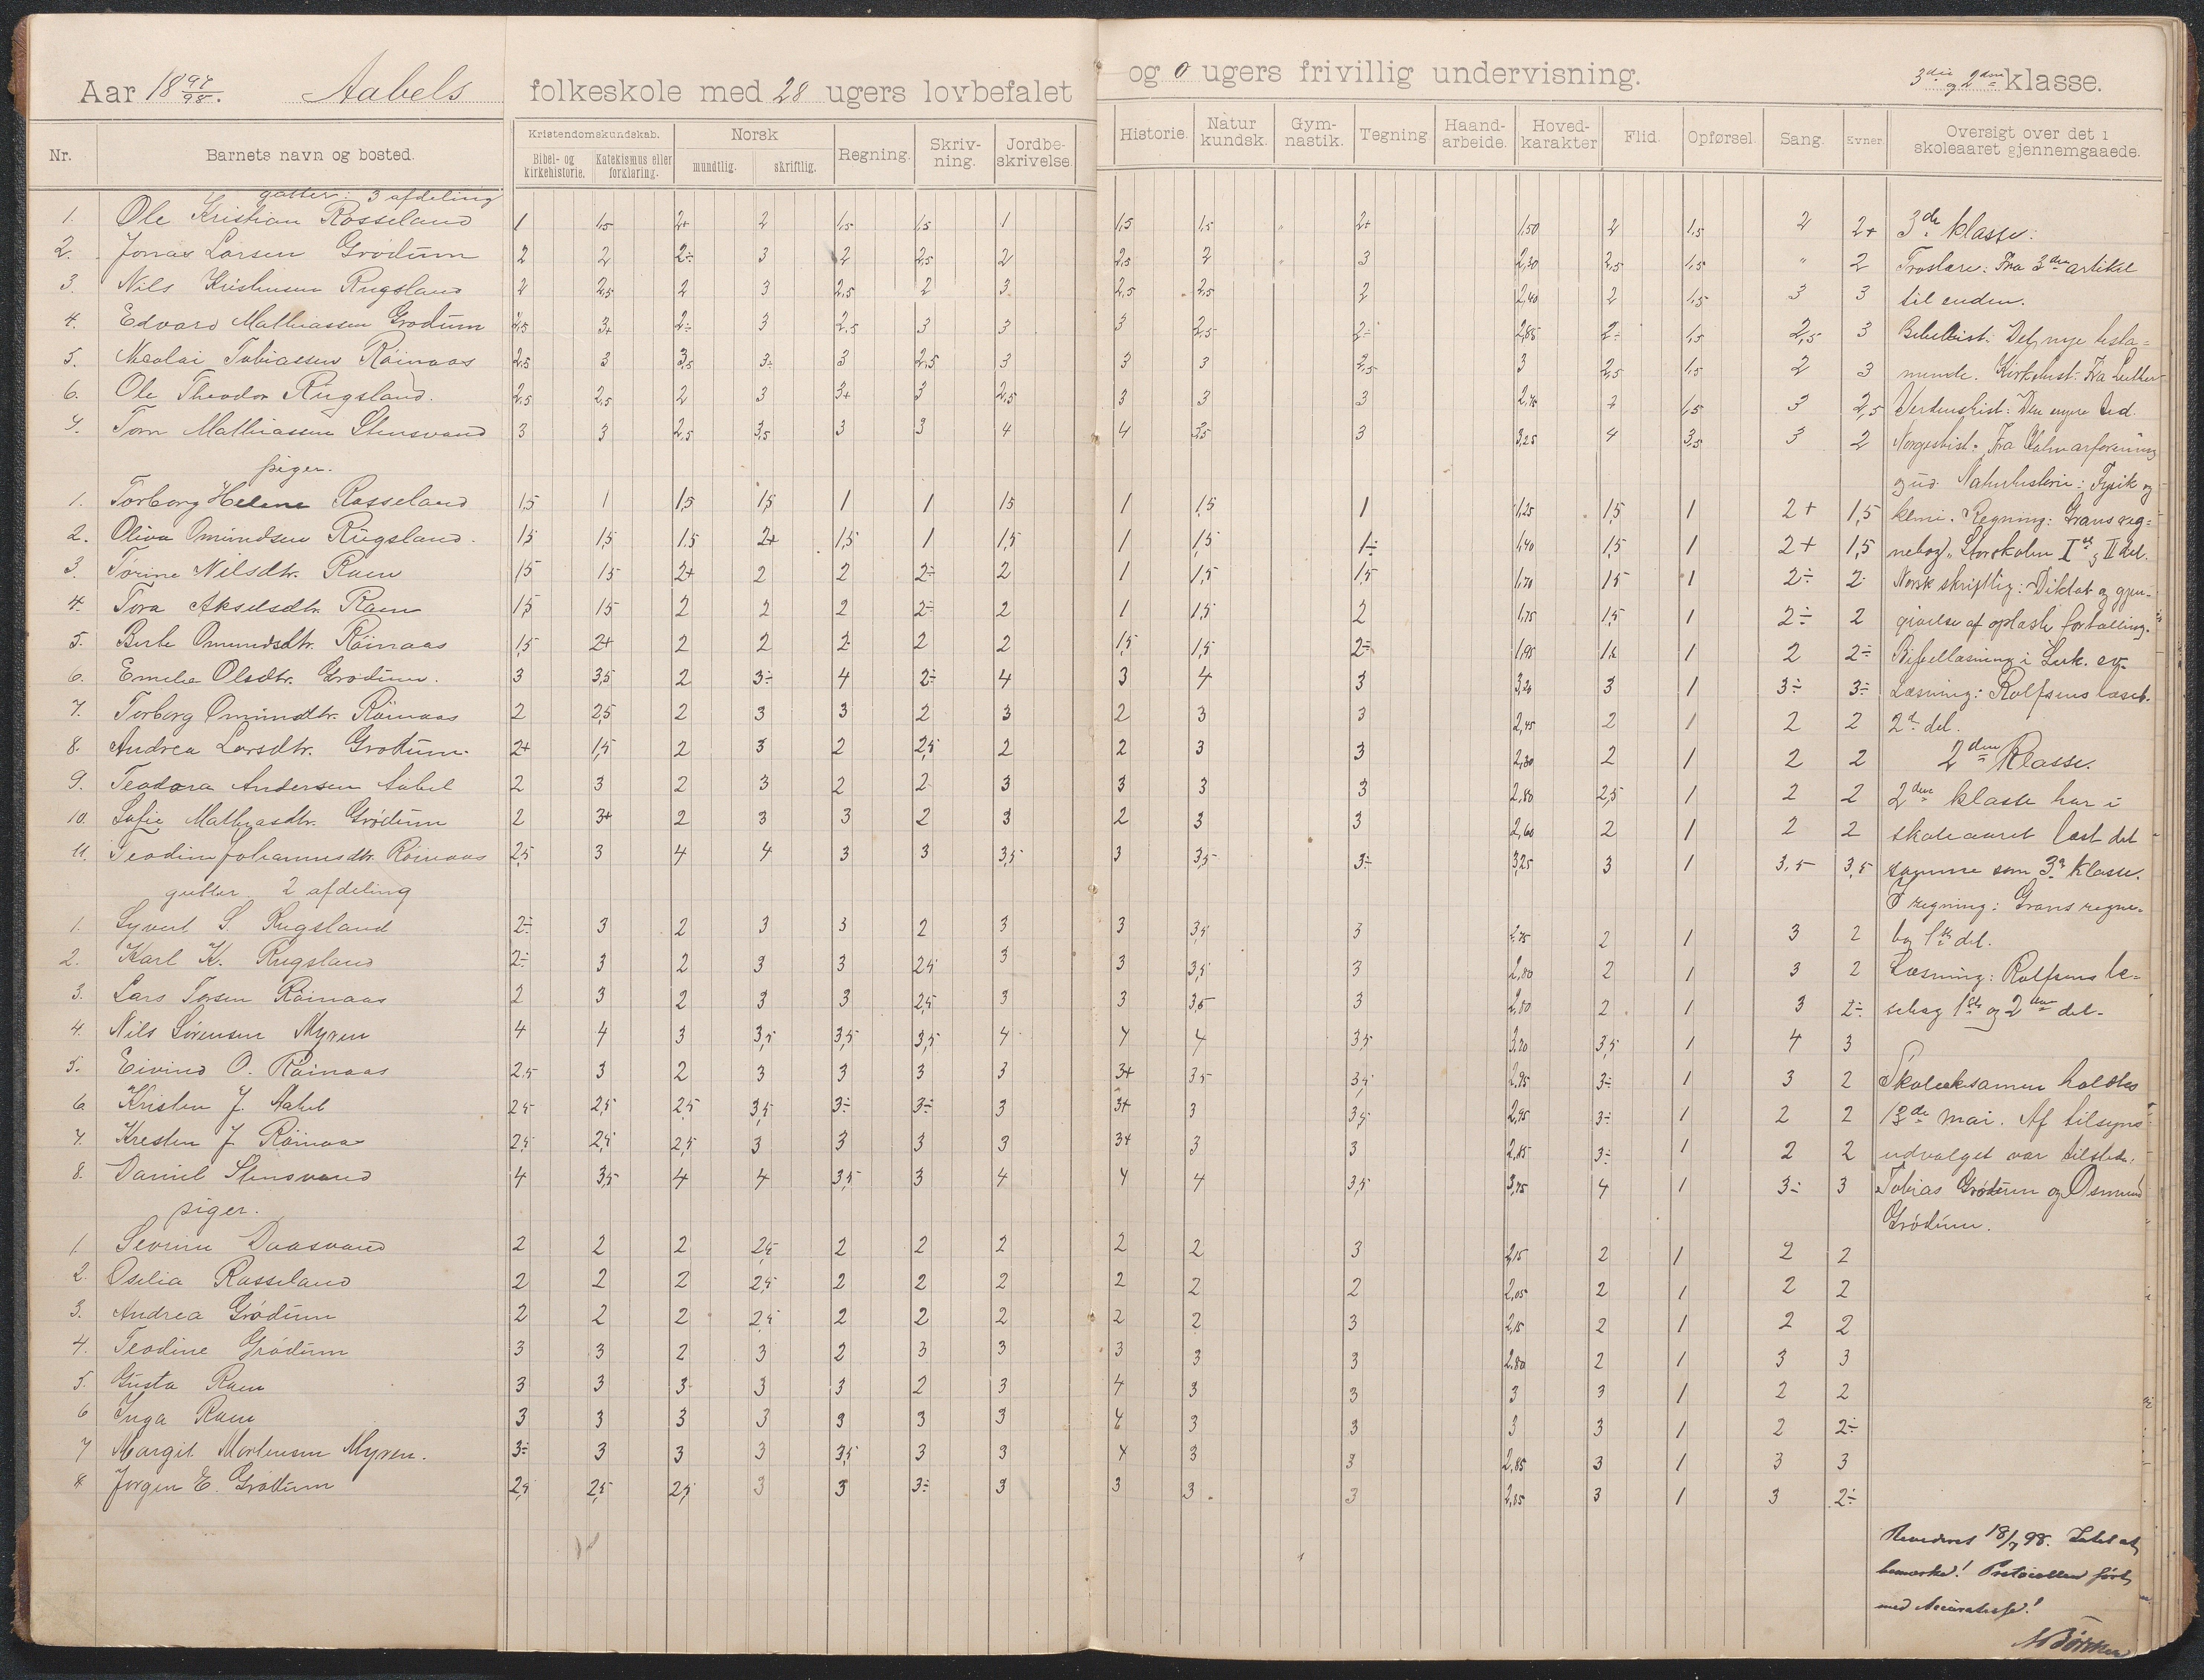 Aar 18 97/98. Aabels folkeskole med 28 ugers lovbefalet og 0 ugers frivillig undervisning. 3die og 2den klasse.
Nr. Barnets navn og bosted. Kristendomskundskab. Bibel- og kirkehistorie. Katekismus eller forklaring. Norsk mundtlig. skriftlig. Regning. Skriv-ning. Jordbe-skrivelse. Historie. Natur kundsk. Gym-nastik. Tegning Haand-arbeide. Hoved-karakter Flid. Opførsel. Sang. Evner. Oversigt over det i skoleaaret gjennemgaaede.
gutter: 3 afdeling
1. Ole Kristian Rosseland 1 1,5 2+ 2 1,5 1,5 1 1,5 1,5 " 2+ 1,50 2 1,5 2 2+
2. Jonas Larsen Grødum 2 2 2÷ 3 2 2,5 2 2,5 2 3 2,30 2,5 1,5 " 2
3. Nils Kristensen Rugsland 2 2,5 2 3 2,5 2 3 2,5 2,5 2 2,40 2 1,5 3 3
4. Edvard Mathiassen Grødum 2,5 3+ 2÷ 3 2,5 3 3 3 2,5 2÷ 2,85 2÷ 1,5 2,5 3
5. Nicolai Tobiassen Röinaas 2,5 3 3,5 3÷ 3 2,5 3 3 3 2,5 3 2,5 1,5 2 3
6. Ole Theodor Rugsland. 2,5 2,5 2 3 3+ 3 2,5 3 3 3 2,75 2 1,5 3 2,5
7. Tom Mathiassen Stensvand 3 3 2,5 3,5 3 3 4 4 3,5 3 3,25 4 3,5 3 2
piger.
1. Torborg Helene Rosseland 1,5 1 1,5 1,5 1 1 1,5 1 1,5 1 1,25 1,5 1 2+ 1,5
2. Oliva Omundsen Rugsland. 1,5 1,5 1,5 2+ 1,5 1 1,5 1 1,5 1÷ 1,40 1,5 1 2+ 1,5
3. Torine Nilsdtr. Ram 1,5 1,5 2+ 2 2 2÷ 2 1 1,5 1,5 1,70 1,5 1 2÷ 2
4. Tora Akselsdtr. Ram 1,5 1,5 2 2 2 2÷ 2 1 1,5 2 1,75 1,5 1 2÷ 2
5. Berte Omundsdtr. Röinaas 1,5 2+ 2 2 2 2 2 1,5 1,5 2÷ 1,95 1,5 1 2 2÷
6. Emelie Olsdtr. Grødum. 3 3,5 2 3÷ 4 2÷ 4 3 4 3 3,20 3 1 3÷ 3÷
7. Torborg Omundtr. Röinaas 2 2,5 2 3 3 2 3 2 3 3 2,45 2 1 2 2
8. Andrea Larsdtr. Grødum. 2+ 1,5 2 3 2 2,5 2 2 3 3 2,30 2 1 2 2
9. Teodora Andersen Aabel 2 3 2 3 2 2 3 3 3 3 2,80 2,5 1 2 2
10. Sofie Mathiasdtr. Grødum 2 3+ 2 3 3 2 3 2 3 3 2,60 2 1 2 2
11. Teodine Johannesdtr. Röinaas 2,5 3 4 4 3 3 3,5 3 3,5 3÷ 3,25 3 1 3,5 3,5
gutter 2 afdeling
1. Syvert S. Rugsland 2÷ 3 2 3 3 2 3 3 3,5 3 2,75 2 1 3 2
2. Karl K. Rugsland 2÷ 3 2 3 3 2,5 3 3 3,5 3 2,80 2 1 3 2
3. Lars Torsen Röinaas 2 3 2 3 3 2,5 3 3 3,5 3 2,80 2 1 3 2÷
4. Nils Sørensen Myren 4 4 3 3,5 3,5 3,5 4 4 4 3,5 3,70 3,5 1 4 3
5. Eivind O. Röinaas 2,5 3 2 3 3 3 3 3+ 3,5 3,5 2,95 3÷ 1 3 2
6 Kristen J. Aabel 2,5 2,5 2,5 3,5 3÷ 3÷ 3 3+ 3 3,5 2,95 3÷ 1 2 2
7. Kresten J. Röinaas 2,5 2,5 2,5 3 3 3 3 3+ 3 3 2,85 3÷ 1 2 2
8. Daniel Stensvand 4 3,5 4 4 3,5 3 4 4 4 3,5 3,75 4 1 3÷ 3
piger.
1. Severine Daasvand 2 2 2 2,5 2 2 2 2 2 3 2,15 2 1 2 2
2. Oselia Rosseland 2 2 2 2,5 2 2 2 2 2 2 2,05 2 1 2 2
3. Andrea Grödum 2 2 2 2,5 2 2 2 2 2 3 2,15 2 1 2 2
4. Teodine Grödum 3 3 2 3 2 3 3 3 3 3 2,80 2 1 3 3
5. Gusta Ram 3 3 3 3 3 2 3 4 3 3 3 3 1 2 2
6 Inga Ram 3 3 3 3 3 3 3 4 3 3 3 3 1 2 2÷
7 Margit Mortensen Myren. 3÷ 3 3 3 3,5 3 3 4 3 3 2,85 3 1 3 3
8 Jørgen E. Grödum 2,5 2,5 2,5 3 3 3÷ 3 3 3 3 2,85 3 1 3 2÷
3de klasse:
Troslære: Fra 3die artikel
til enden.
Bibelhist: Det nye testa=
mente. Kirkehist: Fra Luther
Verdenshist: Den nyere tid.
Norgeshist: Fra Kalmarforening
og ud. Naturhistorie: Fysik og
kemi. Regning: Grans reg=
nebog, Storskolen Iste og II del.
Norsk skriftlig: Diktat og gjen-
givelse af oplæste fortælling.
Bibellæsning i Luk. ev.
Læsning: Rolfsens læseb.
2d del.
2den Klasse.
2den klasse har i
skoleaaret læst det
samme som 3die klasse.
I regning: Grans regne-
bog 1ste del.
Læsning: Rolfsens læ=
sebog 1ste og 2den del.
Skoleeksamen holdtes
13de mai. Af tilsyns-
udvalget var tilstede:
Tobias Grødum og Osmund
Grödum.
Revideret 18/7 98. Intet at
bemærke! Protocollen ført
med Accuratesse!